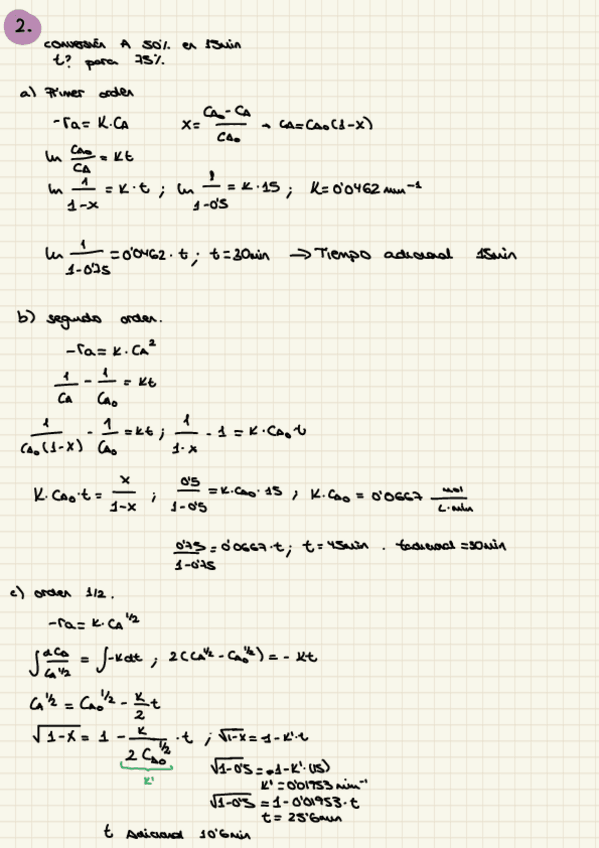 2.
conversión A 50% en 15min
t? para 75%.
a) Primer orden
-ra = K·CA    X = (CA0 - CA)/CA0 → CA = CA0(1-X)
ln CA0/CA = Kt
ln 1/(1-x) = K·t ; ln 1/(1-0'5) = K·15 ; K = 0'0462 min⁻¹
ln 1/(1-0'75) = 0'0462·t ; t = 30min → Tiempo adicional 15min
b) segundo orden.
-ra = K·CA²
1/CA - 1/CA0 = Kt
1/(CA0(1-X)) - 1/CA0 = Kt ; 1/(1-x) - 1 = K·CA0·t
K·CA0·t = x/(1-x) ; 0'5/(1-0'5) = K·CA0·15 ; K·CA0 = 0'0667 mol/(L·min)
0'75/(1-0'75) = 0'0667·t ; t = 45min . tadicional = 30min
c) orden 1/2.
-ra = K·CA^1/2
∫ dCA/CA^1/2 = ∫-Kdt ; 2(CA^1/2 - CA0^1/2) = - Kt
CA^1/2 = CA0^1/2 - K/2 t
√(1-X) = 1 - K/(2 CA0^1/2) · t ; √(1-x) = 1 - K'·t
K'
√(1-0'5) = 1 - K'·(15)
K' = 0'01953 min⁻¹
√(1-0'5) = 1 - 0'01953·t
t = 25'6min
t adicional 10'6min